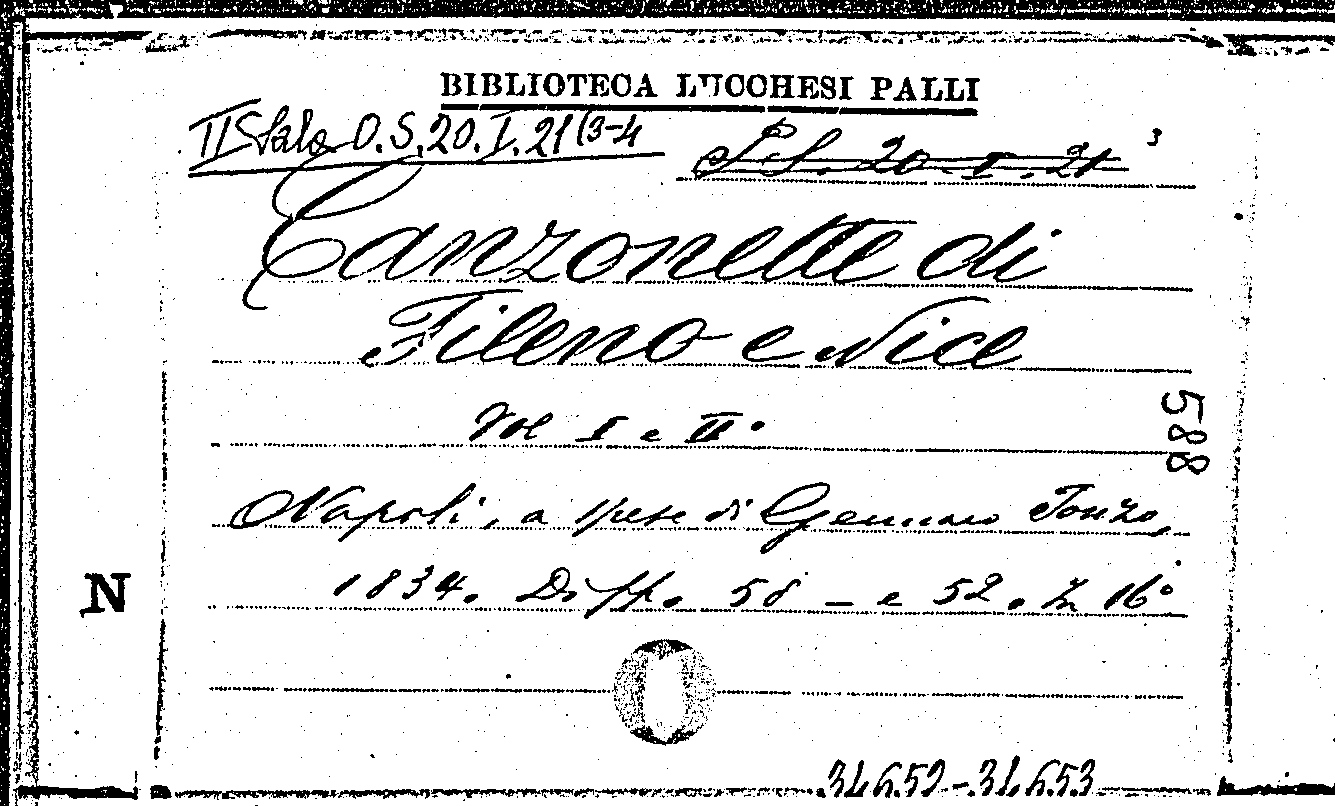 BIBLIOTECA LUCCHESI PALLI
II Sala O.S.20.I.21(3-4
S.S. 20. I. 21 3
Canzonette di
Fileno e Nice
Vol I e II°
588
Napoli, a spese di Gennaro Fonzo,
1834. Di pp. 58 – e 52. In 16°
N
34652-34653